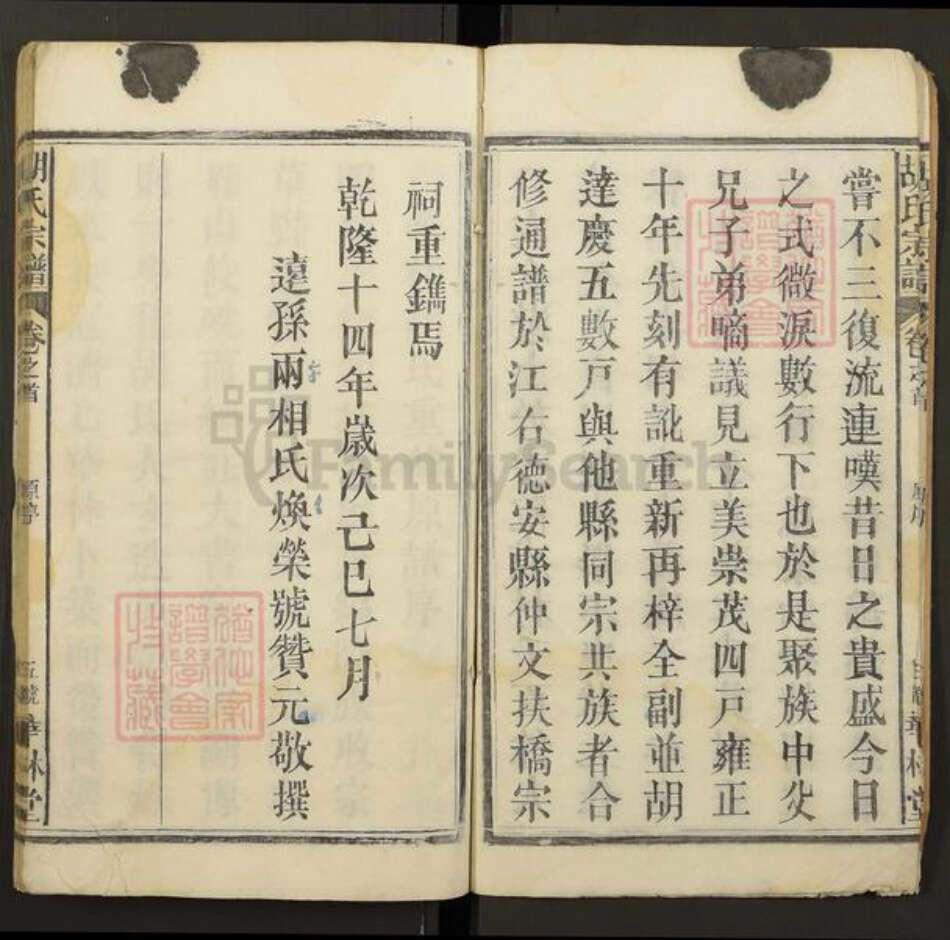 胡氏宗譜
卷之首
華林堂
嘗不三復流連嘆昔日之貴盛今日
之式微淚數行下也於是聚族中父
兄子弟嘀議見立美崇茂四戸雍正
十年先刻有訛重新再梓全副並胡
達慶五數戸與他縣同宗共族者合
修通譜於江右德安縣仲文扶橋宗
祠重鐫焉
乾隆十四年歲次己巳七月
遠孫兩相氏煥榮號贊元敬撰
胡氏宗譜
卷之首
原序
五號
華林堂
FamilySearch